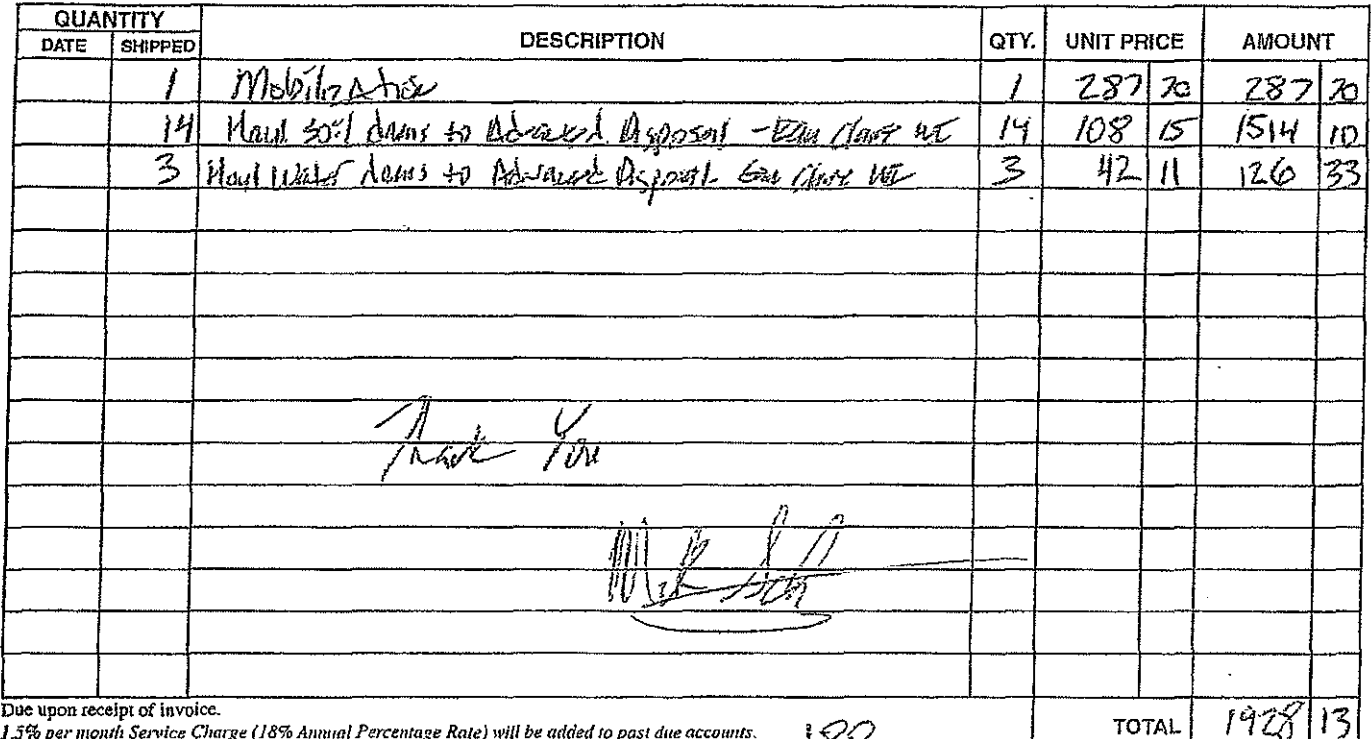 QUANTITY
DATE SHIPPED DESCRIPTION QTY. UNIT PRICE AMOUNT
1 Mobilization 1 287 70 287 70
14 Haul Soil drums to Advanced Disposal - Eau Claire WI 14 108 15 1514 10
3 Haul Water drums to Advanced Disposal Eau Claire WI 3 42 11 126 33
Thank You
Due upon receipt of invoice.
1.5% per month Service Charge (18% Annual Percentage Rate) will be added to past due accounts.
TOTAL 1928 13